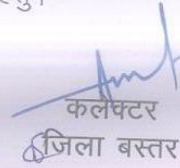 कलेक्टर
जिला बस्तर